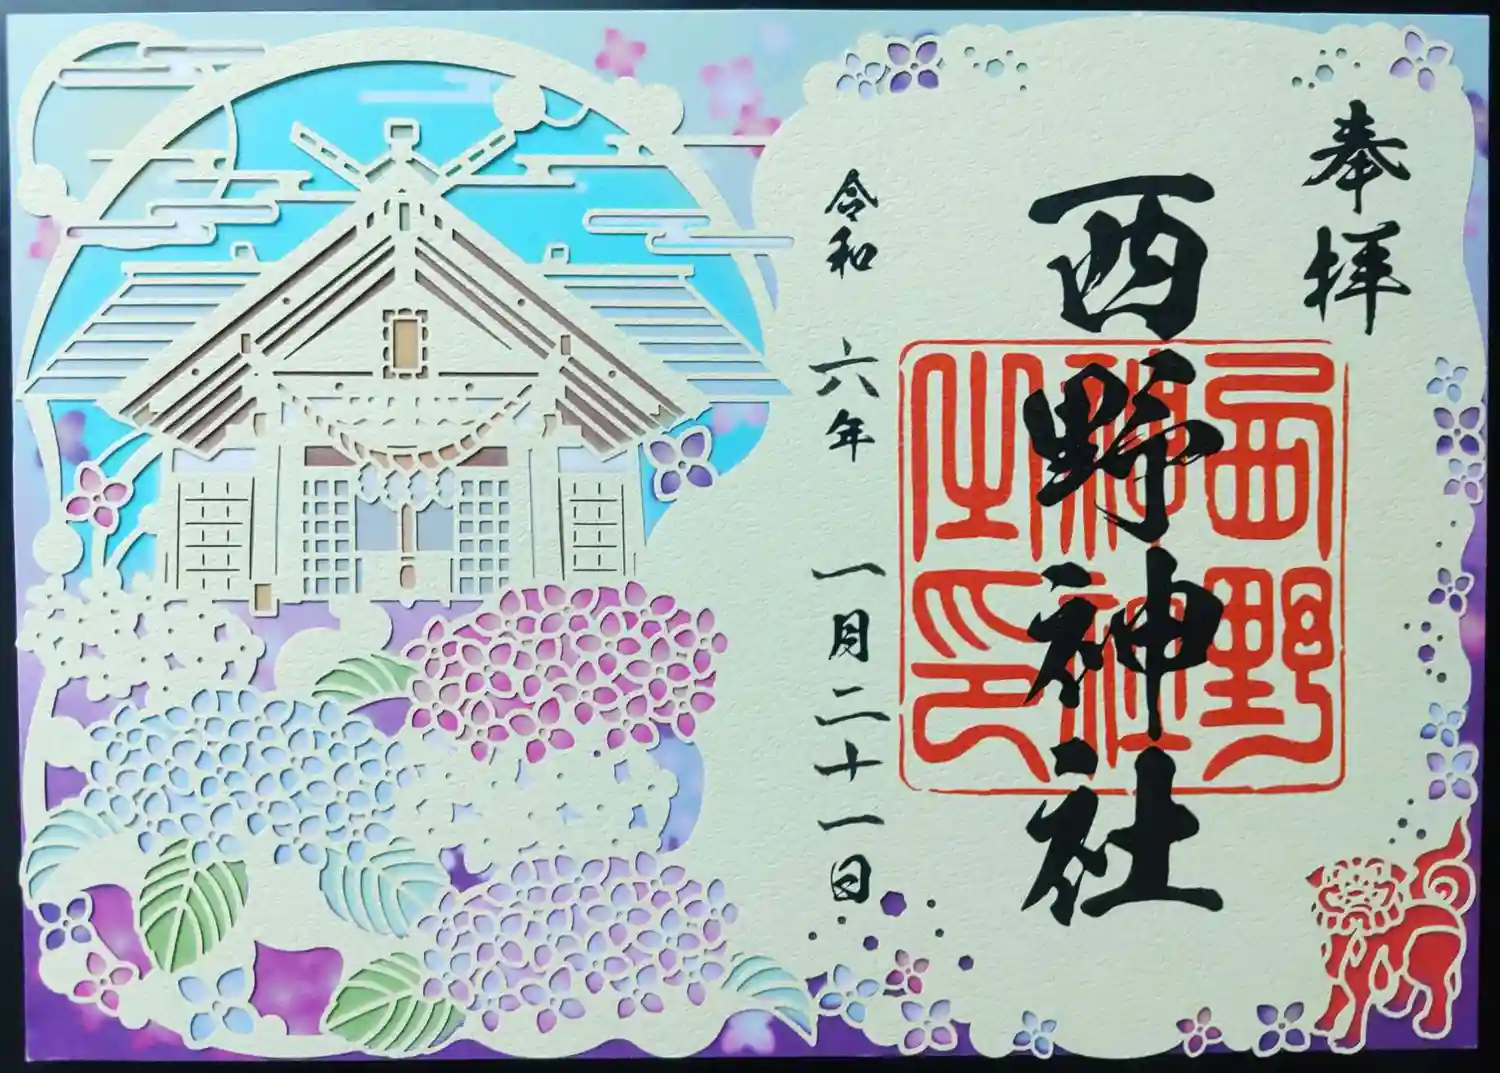 奉拝
西野神社
西野神社之印
令和六年一月二十一日